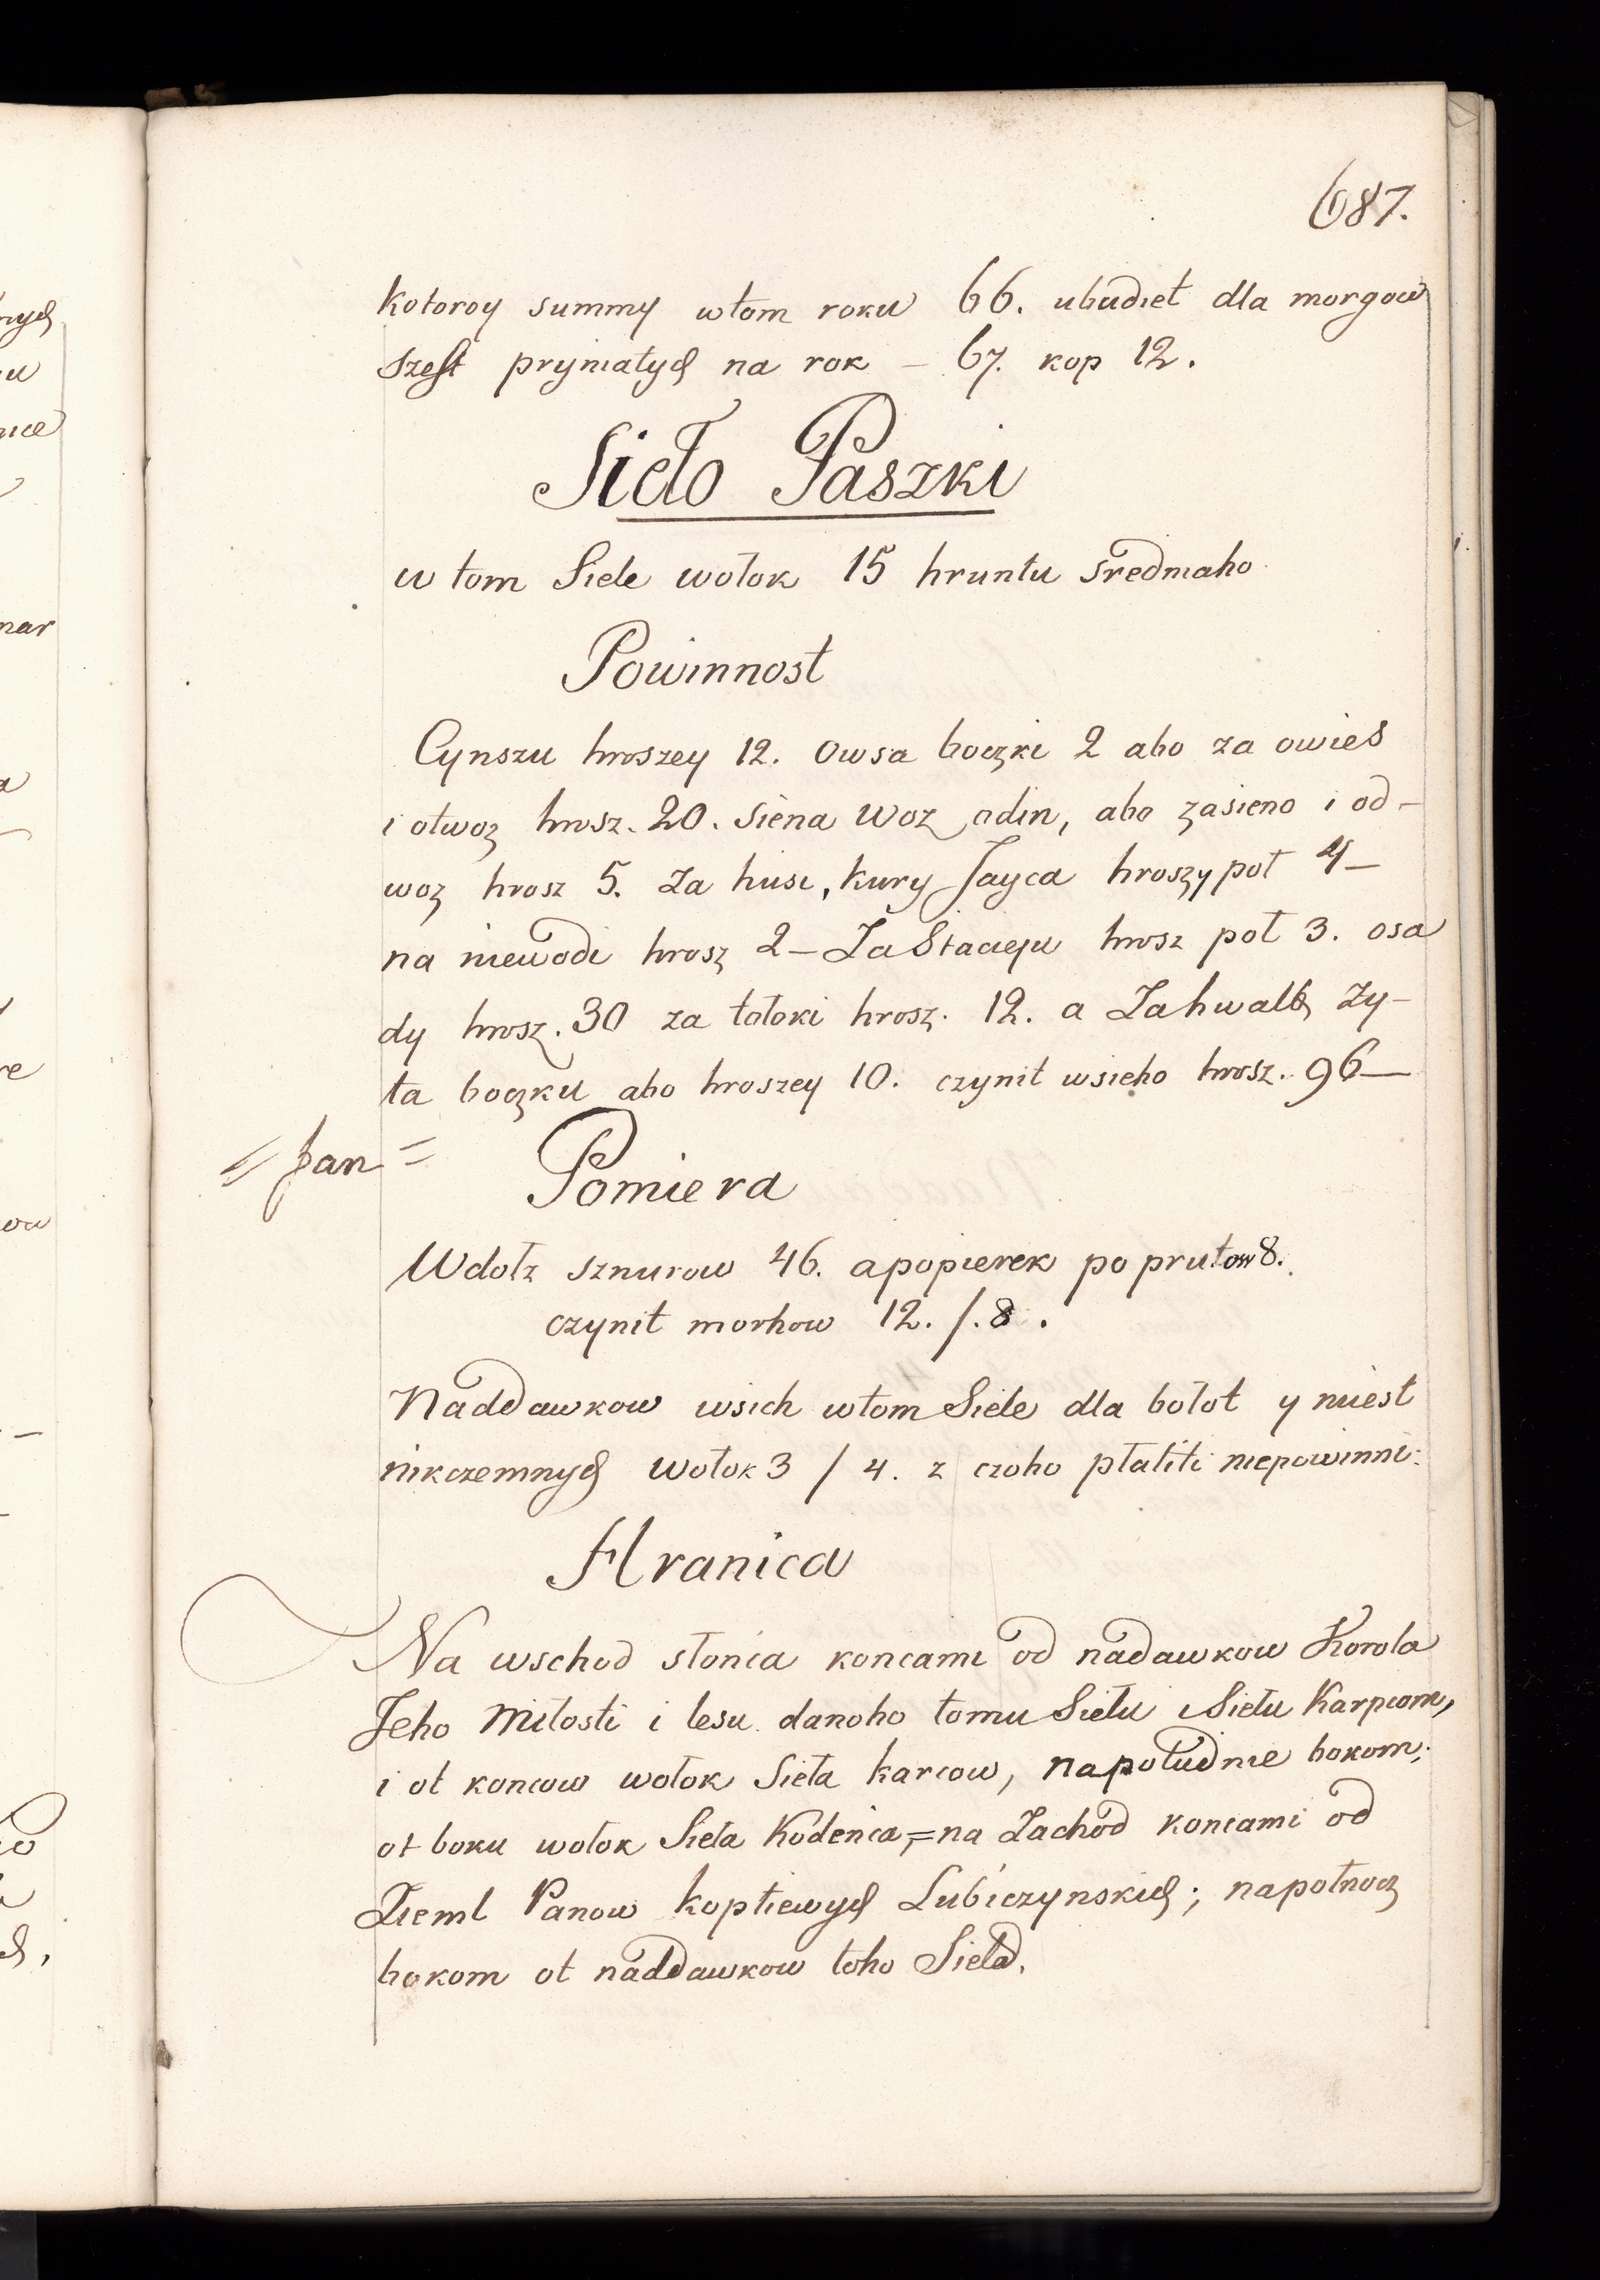 687.
kotoroy summy wtom roku 66. ubudiet dla morgow
szest pryjniatych na rok – 67. kop 12.
Sieło Paszki
w tom Siele wołok 15 hruntu sredniaho
Powinnost
Cynszu hroszey 12. owsa boczki 2 abo za owies
i otwoz hrosz. 20. siena woz odin, abo zasieno i od-
woz hrosz 5. Za husi, kury Jayca hroszy poł 4 –
na niewodi hrosz 2 – Za Stacieju hrosz poł 3. osa
dy hrosz. 30 za tołoki hrosz. 12. a Zahwałt, Zy-
ta boczku abo hroszey 10. czynit wsieho hrosz. 96 –
= Jan =
Pomiera
Wdołz sznurow 46. apopierek po prutow 8.
czynit morhow 12. /. 8.
Naddawkow wsich wtom Siele dla bołot y miest
nikczemnych wołok 3 / 4. z czoho płatiti niepowinni.
Hranica
Na wschod słonca koncami od nadawkow Korola
Jeho Miłosti i lesu danoho tomu Siełu i Siełu Karpiom,
i ot koncow wołok Sieła karcow, napołudnie bokom;
ot boku wołok Sieła Kodenca, = na Zachod koncami od
Zieml Panow koptiewych Lubiczynskich; napołnocz
bokom ot naddawkow toho Sieła.
nych
u
nar
ow